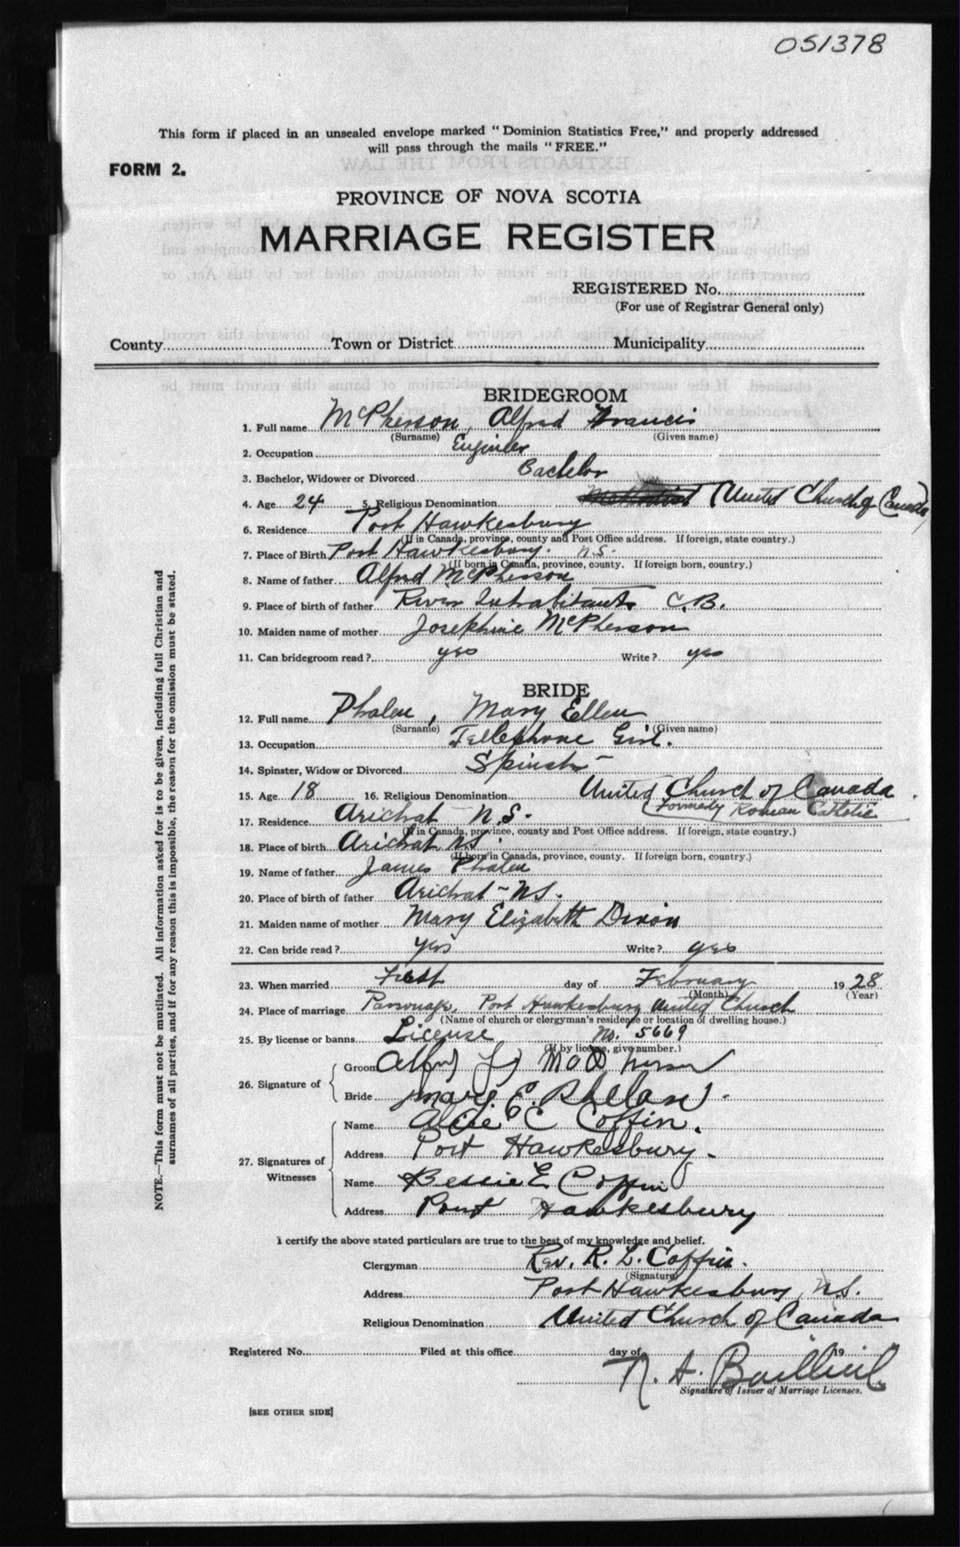 051378
This form if placed in an unsealed envelope marked "Dominion Statistics Free," and properly addressed
will pass through the mails "FREE."
FORM 2.
PROVINCE OF NOVA SCOTIA
MARRIAGE REGISTER
REGISTERED No.
(For use of Registrar General only)
County Town or District Municipality
BRIDEGROOM
1. Full name McPherson, Alfred Francis
(Surname) (Given name)
2. Occupation Engineer
3. Bachelor, Widower or Divorced Bachelor
4. Age 24 5. Religious Denomination Methodist (United Church of Canada)
6. Residence Port Hawkesbury
(If in Canada, province, county and Post Office address. If foreign, state country.)
7. Place of Birth Port Hawkesbury. N.S.
(If born in Canada, province, county. If foreign born, country.)
8. Name of father Alfred McPherson
9. Place of birth of father River Inhabitants C.B.
10. Maiden name of mother Josephine McPherson
11. Can bridegroom read? yes Write? yes
BRIDE
12. Full name Phalen, Mary Ellen
(Surname) (Given name)
13. Occupation Tellephone Girl.
14. Spinster, Widow or Divorced Spinster
15. Age 18 16. Religious Denomination United Church of Canada.
(Formerly Roman Catholic
17. Residence Arichat N.S.
(If in Canada, province, county and Post Office address. If foreign, state country.)
18. Place of birth Arichat N.S.
(If born in Canada, province, county. If foreign born, country.)
19. Name of father James Phalen
20. Place of birth of father Arichat - N.S.
21. Maiden name of mother Mary Elizabeth Dixon
22. Can bride read? yes Write? yes
23. When married First day of February 1928
(Month) (Year)
24. Place of marriage Parsonage, Port Hawkesbury United Church
(Name of church or clergyman's residence or location of dwelling house.)
25. By license or banns License No. 5669
(If by license, give number.)
26. Signature of Groom Alfred F McPherson
Bride Mary E. Phelan.
27. Signatures of Witnesses Name Alcie C Coffin.
Address Port Hawkesbury.
Name Bessie E Coffin
Address Port Hawkesbury
I certify the above stated particulars are true to the best of my knowledge and belief.
Clergyman Rev. R. L. Coffin.
(Signature)
Address Port Hawkesbury, N.S.
Religious Denomination United Church of Canada
Registered No. Filed at this office day of 19
N. A. Baillieul
Signature of Issuer of Marriage Licenses.
[SEE OTHER SIDE]
NOTE.—This form must not be mutilated. All information asked for is to be given, including full Christian and
surnames of all parties, and if for any reason this is impossible, the reason for the omission must be stated.